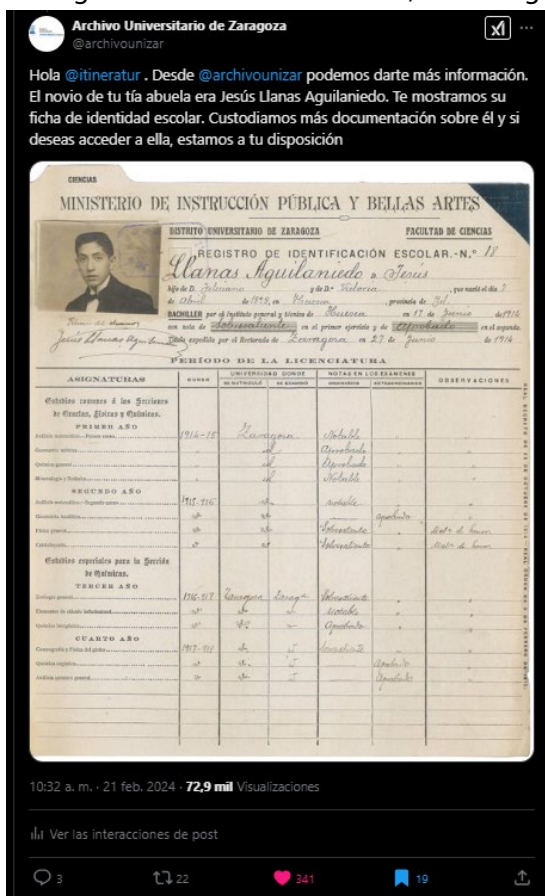 Archivo Universitario de Zaragoza
@archivounizar
Hola @itineratur . Desde @archivounizar podemos darte más información.
El novio de tu tía abuela era Jesús Llanas Aguilaniedo. Te mostramos su
ficha de identidad escolar. Custodiamos más documentación sobre él y si
deseas acceder a ella, estamos a tu disposición
CIENCIAS
MINISTERIO DE INSTRUCCIÓN PÚBLICA Y BELLAS ARTES
DISTRITO UNIVERSITARIO DE ZARAGOZA FACULTAD DE CIENCIAS
REGISTRO DE IDENTIFICACIÓN ESCOLAR.-N.º 18
Llanas Aguilaniedo D. Jesús
hijo de D. Feliciano y de D.ª Victoria, que nació el día
de Abril de 1898, en Huesca, provincia de Id.
BACHILLER por el Instituto general y técnico de Huesca en 17 de Junio de 1914
con nota de Sobresaliente en el primer ejercicio y de Aprobado en el segundo.
Título expedido por el Rectorado de Zaragoza en 27 de Junio de 1914
Firma del alumno
Jesús Llanas Aguilaniedo
PERÍODO DE LA LICENCIATURA
ASIGNATURAS CURSO UNIVERSIDAD DONDE NOTAS EN LOS EXÁMENES OBSERVACIONES
SE MATRICULÓ SE EXAMINÓ ORDINARIOS EXTRAORDINARIOS
Estudios comunes á las Secciones
de Exactas, Físicas y Químicas.
PRIMER AÑO
Análisis matemático.—Primer curso 1914-15 Zaragoza Notable
Geometría métrica id Aprobado
Química general id Aprobado
Mineralogía y Botánica id Notable
SEGUNDO AÑO
Análisis matemático.—Segundo curso 1915-916 Notable
Geometría analítica Aprobado
Física general Sobresaliente Mat.ª de honor
Cristalografía Sobresaliente Mat.ª de honor
Estudios especiales para la Sección
de Químicas.
TERCER AÑO
Zoología general 1916-917 Zaragoza Zaragª Sobresaliente
Elementos de cálculo infinitesimal Notable
Química inorgánica Aprobado
CUARTO AÑO
Cosmografía y Física del globo 1917-918 Sobresaliente
Química orgánica Aprobado
Análisis químico general Aprobado
10:32 a. m. · 21 feb. 2024 · 72,9 mil Visualizaciones
Ver las interacciones de post
3 22 341 19